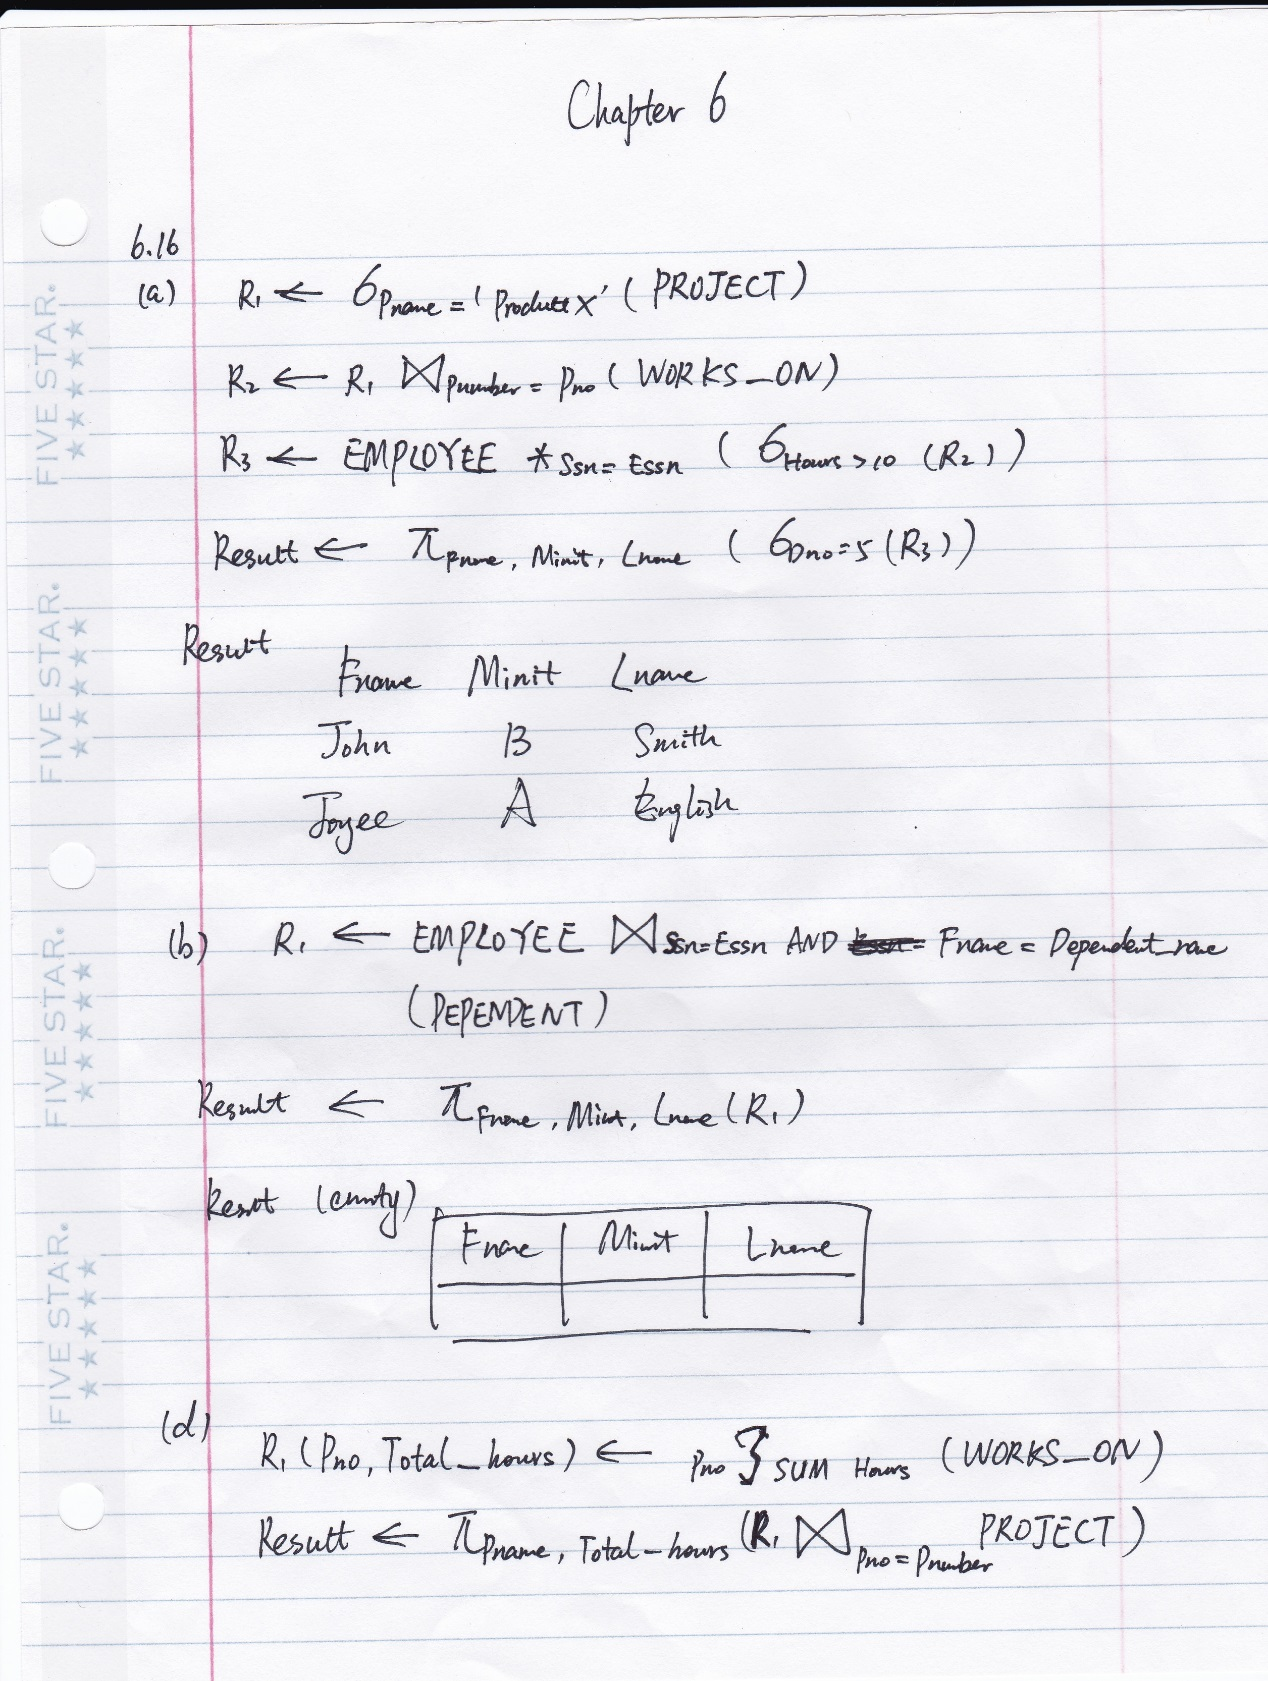 Chapter 6
6.16
(a) R₁ ← σ Pname = 'ProductX' (PROJECT)
R₂ ← R₁ ⋈ Pnumber = Pno (WORKS_ON)
R₃ ← EMPLOYEE * Ssn = Essn (σ Hours > 10 (R₂))
Result ← π Fname, Minit, Lname (σ Dno = 5 (R₃))
Result
Fname Minit Lname
John B Smith
Joyce A English
(b) R₁ ← EMPLOYEE ⋈ Ssn = Essn AND Fname = Dependent_name
(DEPENDENT)
Result ← π Fname, Minit, Lname (R₁)
Result (empty)
Fname Minit Lname
(d)
R₁ (Pno, Total_hours) ← Pno ℱ SUM Hours (WORKS_ON)
Result ← π Pname, Total_hours (R₁ ⋈ Pno = Pnumber PROJECT)
FIVE STAR.
FIVE STAR.
FIVE STAR.
FIVE STAR.